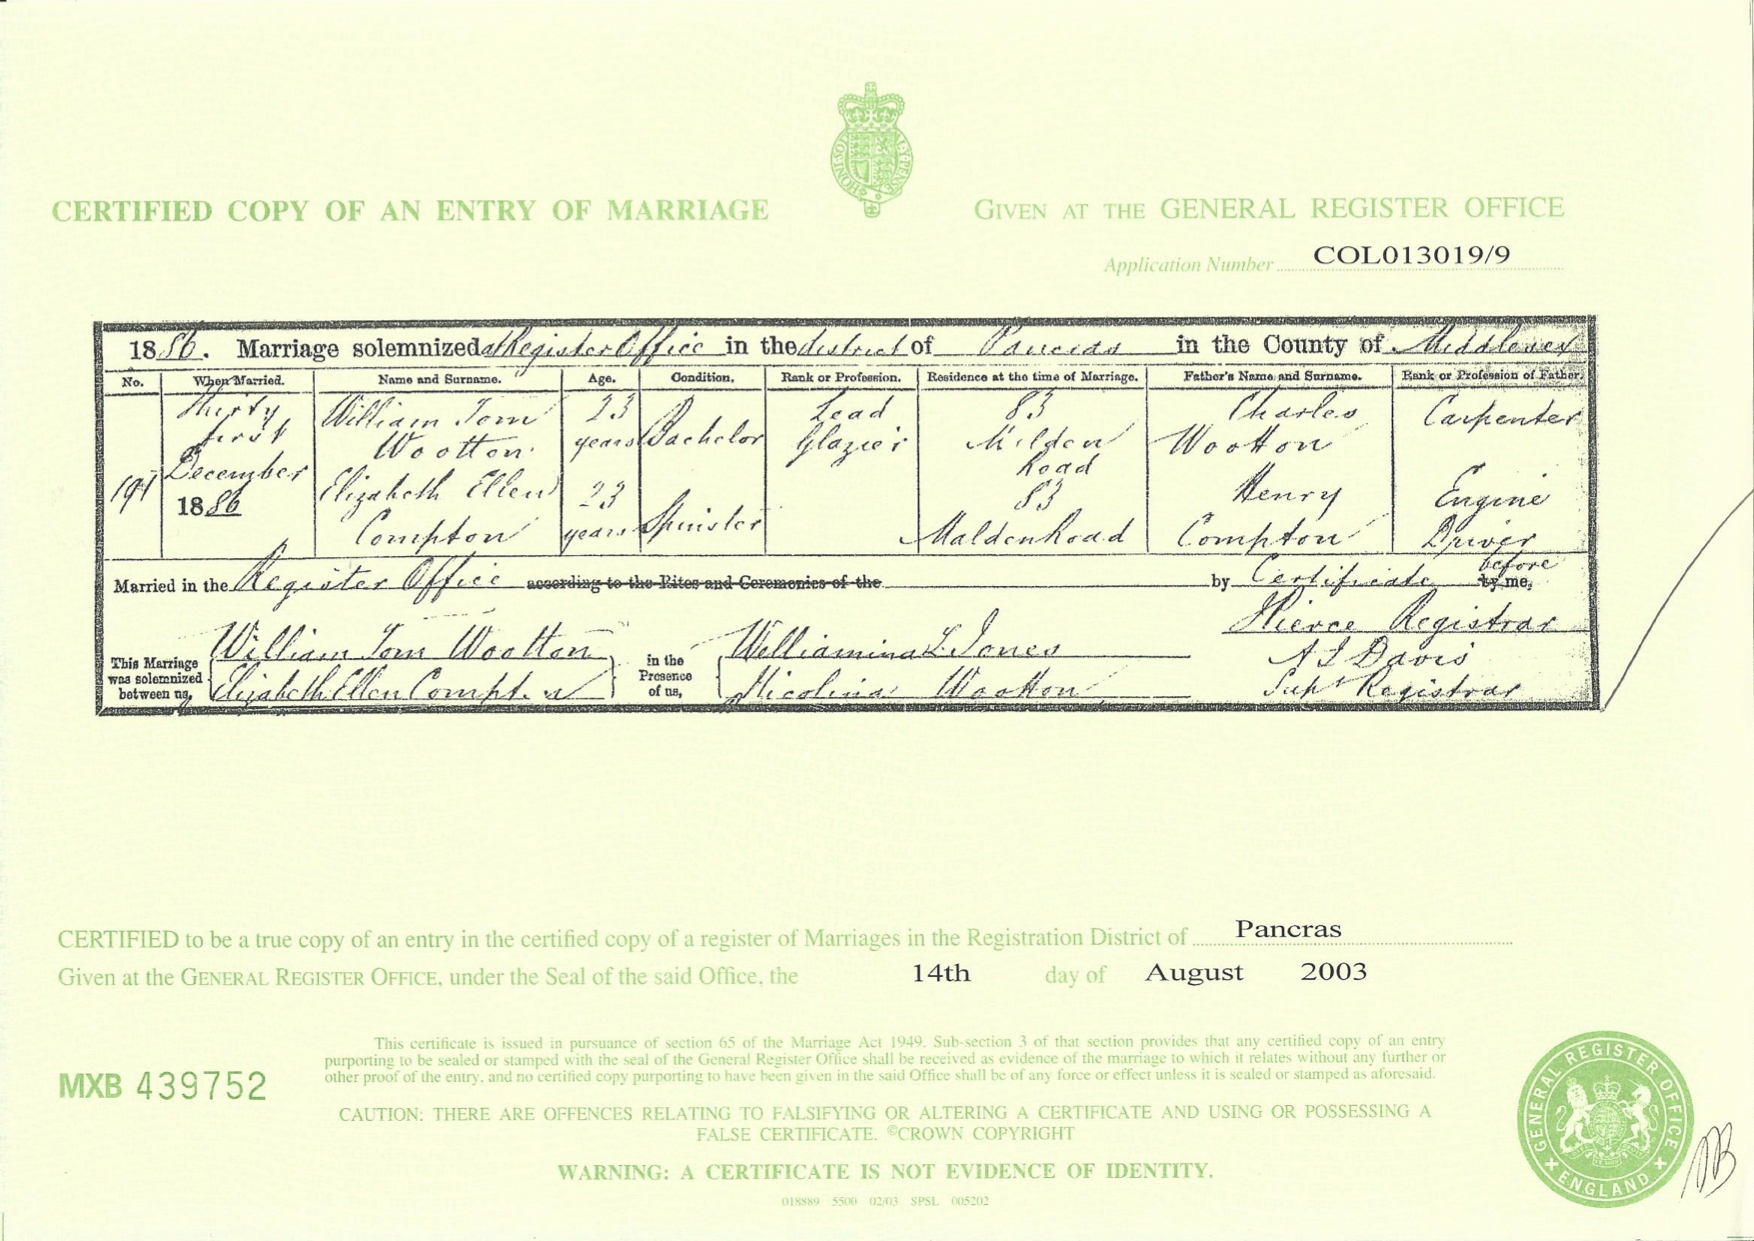 CERTIFIED COPY OF AN ENTRY OF MARRIAGE
GIVEN AT THE GENERAL REGISTER OFFICE
Application Number COL013019/9
1886. Marriage solemnized at Register Office in the district of Pancras in the County of Middlesex
No. When Married. Name and Surname. Age. Condition. Rank or Profession. Residence at the time of Marriage. Father's Name and Surname. Rank or Profession of Father.
Thirty William Tom 23 Lead 83 Charles Carpenter
first Wootton years Bachelor Glazier Milden Wootton
December Road
191 1886 Elizabeth Ellen 23 83 Henry Engine
Compton years Spinster Maldenroad Compton Driver
before
Married in the Register Office according to the Rites and Ceremonies of the by Certificate by me,
Pierce Registrar
This Marriage was solemnized between us, William Tom Wootton in the Presence of us, Welliamina L Jones A I Davis
Elizabeth Ellen Compton Nicolina Wootton Supt Registrar
CERTIFIED to be a true copy of an entry in the certified copy of a register of Marriages in the Registration District of Pancras
Given at the GENERAL REGISTER OFFICE, under the Seal of the said Office, the 14th day of August 2003
This certificate is issued in pursuance of section 65 of the Marriage Act 1949. Sub-section 3 of that section provides that any certified copy of an entry
purporting to be sealed or stamped with the seal of the General Register Office shall be received as evidence of the marriage to which it relates without any further or
other proof of the entry, and no certified copy purporting to have been given in the said Office shall be of any force or effect unless it is sealed or stamped as aforesaid.
MXB 439752
CAUTION: THERE ARE OFFENCES RELATING TO FALSIFYING OR ALTERING A CERTIFICATE AND USING OR POSSESSING A
FALSE CERTIFICATE. ©CROWN COPYRIGHT
WARNING: A CERTIFICATE IS NOT EVIDENCE OF IDENTITY.
018889 5500 02/03 SPSL 005202
GENERAL REGISTER OFFICE
ENGLAND